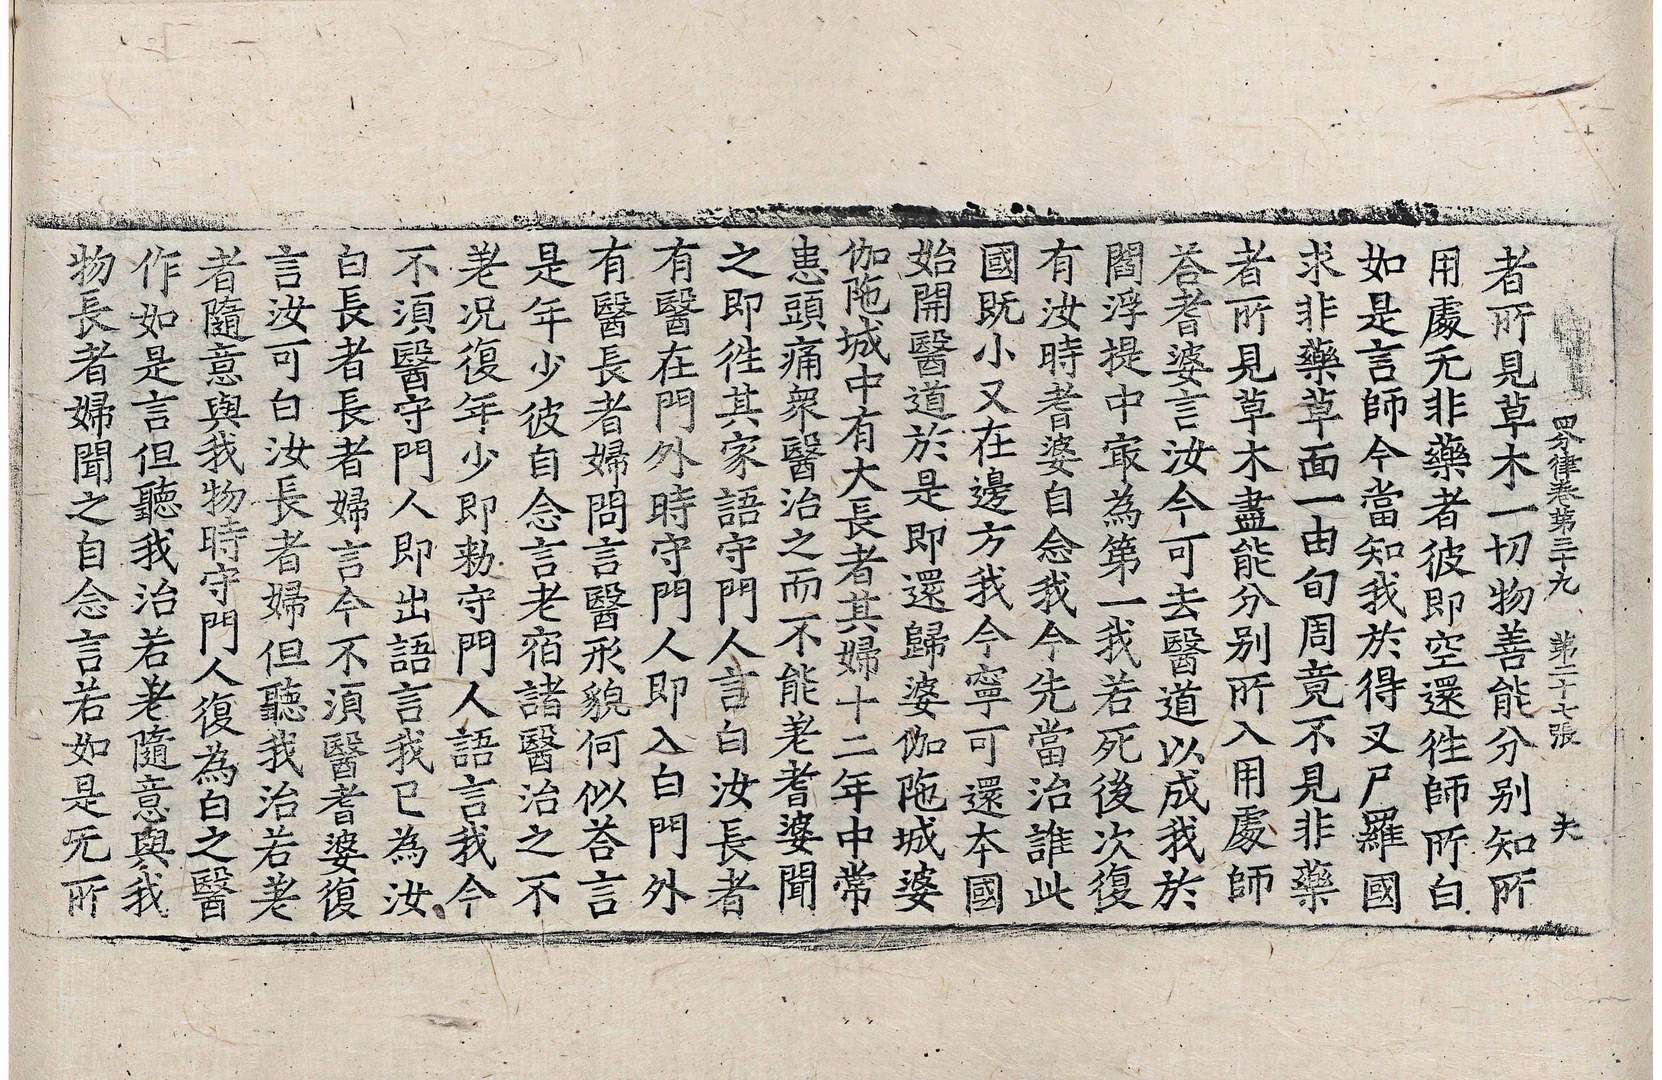 四分律卷第三十九　第二十七張　夫
者所見草木一切物善能分別知所
用處无非藥者彼即空還往師所白
如是言師今當知我於得叉尸羅國
求非藥草面一由旬周竟不見非藥
者所見草木盡能分别所入用處師
荅耆婆言汝今可去醫道以成我於
閻浮提中㝡為第一我若死後次復
有汝時耆婆自念我今先當治誰此
國既小又在邊方我今寧可還本國
始開醫道於是即還歸婆伽陁城婆
伽陁城中有大長者其婦十二年中常
患頭痛衆醫治之而不能差耆婆聞
之即往其家語守門人言白汝長者
有醫在門外時守門人即入白門外
有醫長者婦問言醫形貌何似荅言
是年少彼自念言老宿諸醫治之不
差况復年少即勑守門人語言我今
不須醫守門人即出語言我已為汝
白長者長者婦言今不須醫耆婆復
言汝可白汝長者婦但聽我治若差
者隨意與我物時守門人復為白之醫
作如是言但聽我治若差隨意與我
物長者婦聞之自念言若如是无所